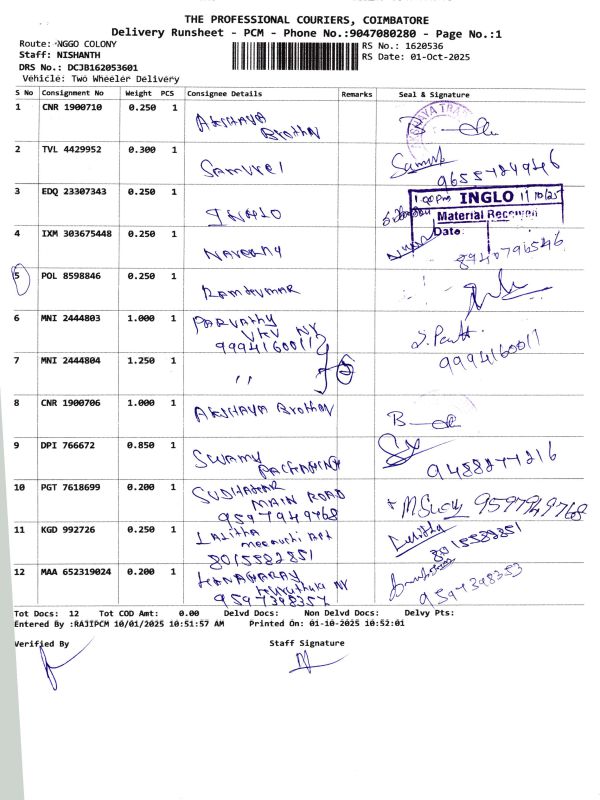 THE PROFESSIONAL COURIERS, COIMBATORE
Delivery Runsheet - PCM - Phone No.:9047080280 - Page No.:1
Route: NGGO COLONY
RS No.: 1620536
Staff: NISHANTH
RS Date: 01-Oct-2025
DRS No.: DCJB162053601
Vehicle: Two Wheeler Delivery
S No Consignment No Weight PCS Consignee Details Remarks Seal & Signature
1 CNR 1900710 0.250 1 AKSHAYA Brother
2 TVL 4429952 0.300 1 Samuvel 9655784946
3 EDQ 23307343 0.250 1 INGLO 1.00pm INGLO 1/10/25
Material Received
Date:
4 IXM 303675448 0.250 1 Naveeny 8940796546
5 POL 8598846 0.250 1 Ramkumar
6 MNI 2444803 1.000 1 Parvathy
VKV NY
9994160011 9994160011
7 MNI 2444804 1.250 1 "
8 CNR 1900706 1.000 1 AKSHAYA Brother
9 DPI 766672 0.850 1 Swamy
Packaging 9488277216
10 PGT 7618699 0.200 1 SUDHAKAR
MAIN ROAD
9597949768 9597949768
11 KGD 992726 0.250 1 Lalitha
8015582851 8015582851
12 MAA 652319024 0.200 1 9597398353
Tot Docs: 12 Tot COD Amt: 0.00 Delvd Docs: Non Delvd Docs: Delvy Pts:
Entered By :RAJIPCM 10/01/2025 10:51:57 AM Printed On: 01-10-2025 10:52:01
Verified By Staff Signature